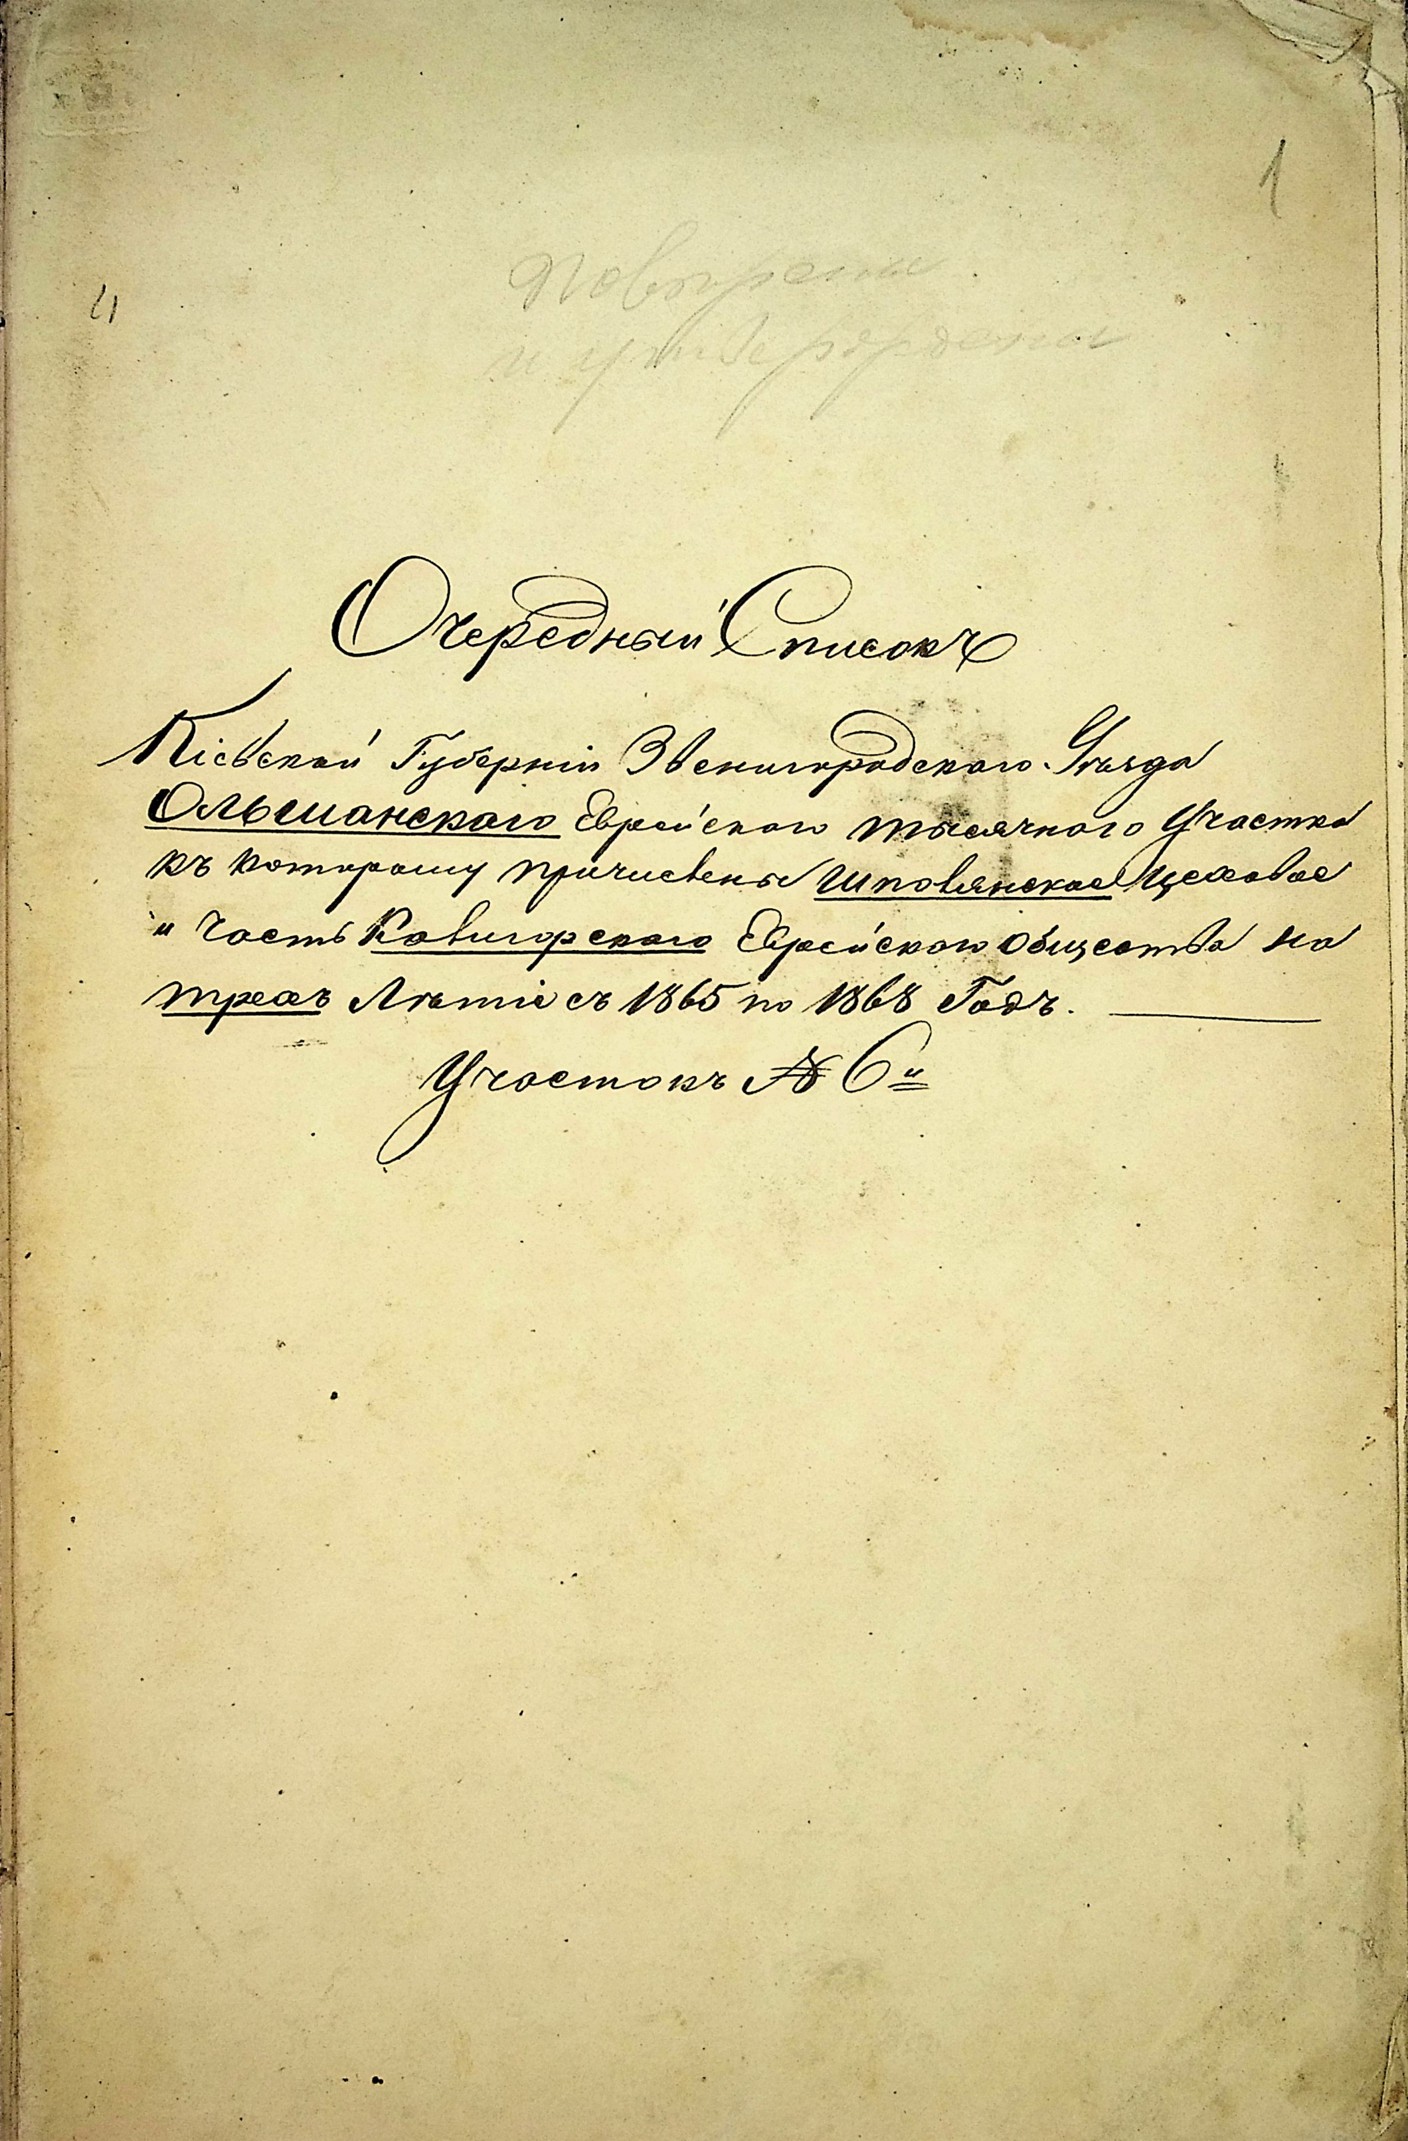 1
повѣрены
4
и утверждены
Очередный Списокъ
Кіевской Губерніи Звенигородскаго Уѣзда
Ольшанскаго Еврейскаго тысячнаго Участка
къ которому причислены Шполянское Цеховое
и Часть Кавигорскаго Еврейскаго Общества на
трехъ Лѣтіе съ 1865 по 1868 Годъ.
Участокъ № 6й